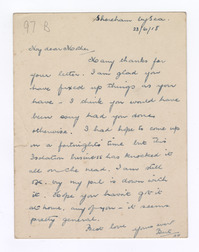 97 B
Shoreham by Sea
23/6/18
My dear Mother,
Many thanks for
your letter. I am glad you
have fixed up things as you
have – I think you would have
been sorry had you done
otherwise. I had hoped to come up
on a fortnight's time but this
Isolation business has knocked it
all on the head. I am still
OK. my pal is down with
it. Hope you haven't got it
at home, any of you – it seems
pretty general.
Best love your son